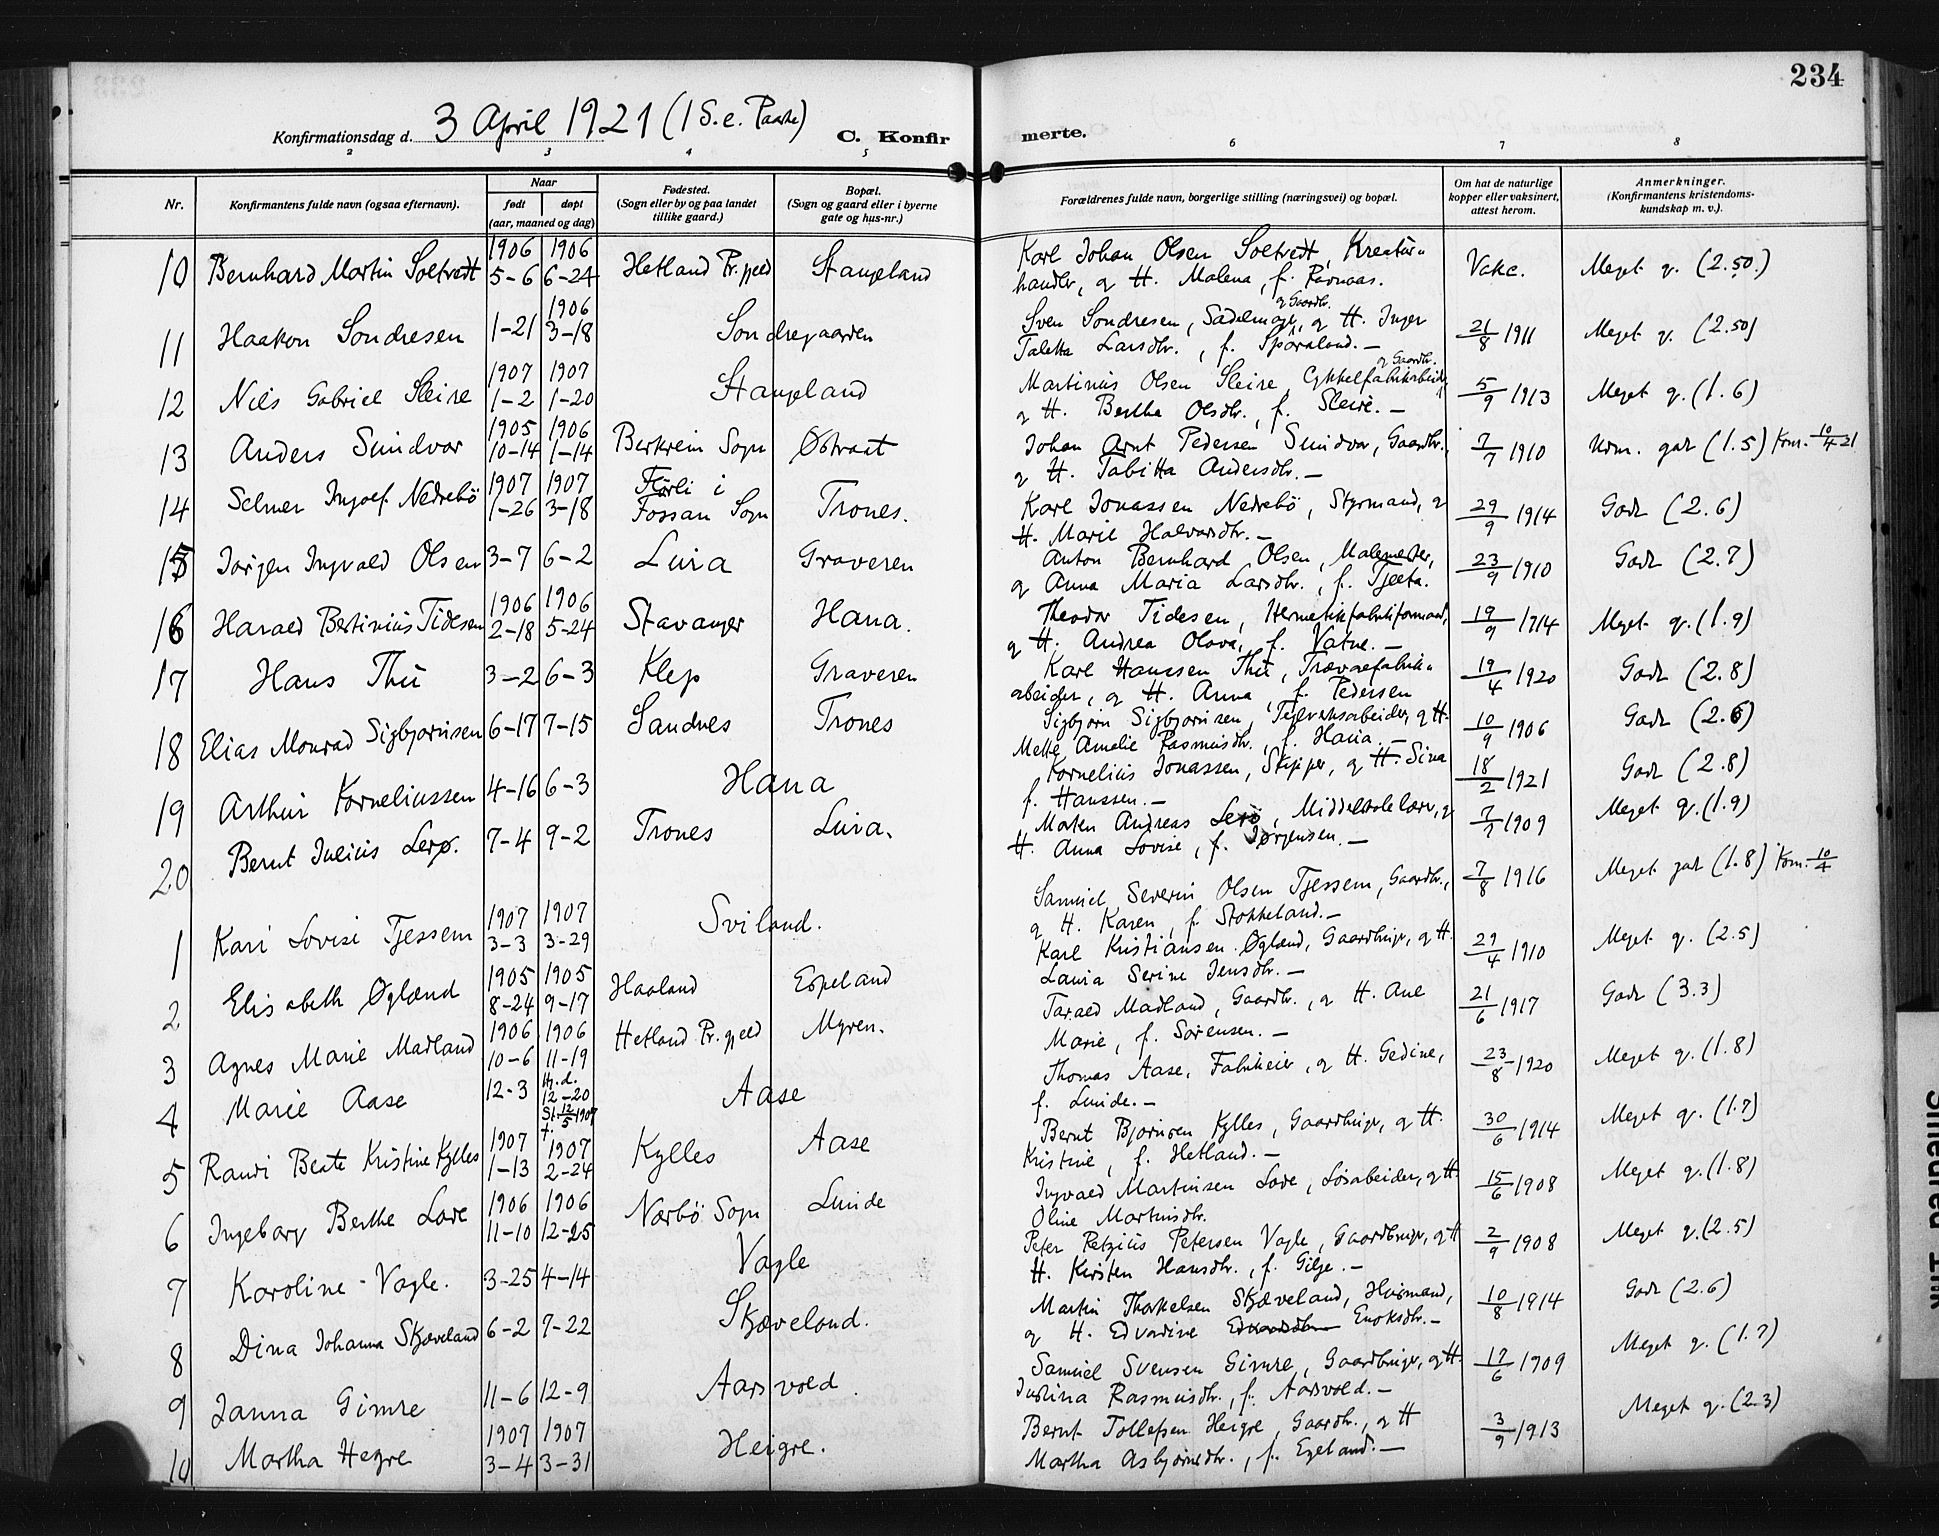 234
Konfirmationsdag d. 3 April 1921 (1 S. e. Paaske) C. Konfirmerte.
2 3 4 5 6 7 8
Nr. Konfirmantens fulde navn (ogsaa efternavn). Naar født døpt (aar, maaned og dag) Fødested. (Sogn eller by og paa landet tillike gaard.) Bopæl. (Sogn og gaard eller i byerne gate og hus-nr.) Forældrenes fulde navn, borgerlige stilling (næringsvei) og bopæl. Om hat de naturlige kopper eller vaksinert, attest herom. Anmerkninger. (Konfirmantens kristendomskundskap m. v.).
10 Bernhard Martin Soltvedt 1906 5-6 1906 6-24 Hetland Pr.gjeld Stangeland Karl Johan Olsen Soltvedt, Kreatur-
handler, og H. Malena, f. Ravnaas. Vakc. Meget g. (2.50.)
11 Haakon Sondresen 1-21 1906 3-18 Sondregaarden Sven Sondresen, Sadelmager, og Gaardbr. og H. Inger
Taletta Larsdtr., f. Sporaland. — 21/8 1911 Meget g. (2.50)
12 Nils Gabriel Sleire 1907 1-2 1907 1-20 Stangeland Martinius Olsen Sleire, Cykkelfabrikarbeider, og Gaardbr.
og H. Berthe Olsdtr. f. Sleire. — 5/9 1913 Meget g. (1.6)
13 Anders Sundvor 1905 10-14 1906 1-14 Bjerkreim Sogn Østraat Johan Arnt Pedersen Sundvor, Gaardbr.,
og H. Tabitta Andersdtr. — 7/7 1910 Udm. godt (1.5) Kom. 10/4 21
14 Selmer Ingolf Nedrebö 1907 1-26 1907 3-18 Fürli i Fossan Sogn Trones. Karl Jonassen Nedrebö, Styrmand, og
H. Marie Halvardtr. — 29/9 1914 Godt (2.6)
15 Jørgen Ingvald Olsen 3-7 6-2 Lura Graveren Anton Bernhard Olsen, Malemester,
og Anna Maria Larsdtr., f. Tjelta. 23/9 1910 Godt (2.7)
16 Harald Bertinius Tidesen 1906 2-18 1906 5-24 Stavanger Hana. Theodor Tidesen, Hermetikfabrikformand,
og H. Andrea Olava, f. Vatne. — 19/9 1914 Meget g. (1.9)
17 Hans Thu 3-2 6-3 Klep Graveren Karl Hanssen Thu, Trævarefabrik-
arbeider, og H. Anna, f. Pedersen 19/4 1920 Godt (2.8)
18 Elias Monrad Sigbjørnsen 6-17 7-15 Sandnes Trones Sigbjørn Sigbjørnsen, Teglverksarbeider, og H.
Mette Amalie Rasmusdtr., f. Hana. — 10/9 1906 Godt (2.6)
19 Arthur Korneliussen 4-16 6-3 Hana Kornelius Jonassen, Skipper, og H. Sina
f. Hanssen. — 18/2 1921 Godt (2.8)
20 Bernt Julius Lerø. 7-4 9-2 Trones Lura. Morten Andreas Lerø, Middelskolelærer, og
H. Anna Lovise, f. Jørgensen. — 7/7 1909 Meget g. (1.9)
1 Kari Lovise Tjessem 1907 3-3 1907 3-29 Sviland. Samuel Severin Olsen Tjessem, Gaardbr.,
og H. Karen, f. Stokkeland. — 7/8 1916 Meget godt (1.8) Kom. 10/4
2 Elisabeth Øglænd 1905 8-24 1905 9-17 Haaland Espeland Karl Kristiansen Øglænd, Gaardbruger, og H.
Laura Serine Jensdtr. — 29/4 1910 Meget g. (2.5)
3 Agnes Marie Madland 1906 10-6 1906 11-19 Hetland Pr.gjeld Myren. Tarald Madland, Gaardbr., og H. Ane
Marie, f. Sørensen. — 21/6 1917 Godt (3.3)
4 Marie Aase 12-3 Hj.d. 12-20 St. 12/5 1907 Aase Thomas Aase, Fabrikeier, og H. Gedine,
f. Lunde. — 23/8 1920 Meget g. (1.8)
5 Randi Beate Kristine Kylles 1907 1-13 1907 2-24 Kylles Aase Bernt Bjørnsen Kylles, Gaardbruger, og H.
Kristine, f. Hetland. — 30/6 1914 Meget g. (1.7)
6 Ingeborg Berthe Lode 1906 11-10 1906 12-25 Nærbö Sogn Lunde Ingvald Martinsen Lode, Løsarbeider, og H.
Oline Martinsdtr. 15/6 1908 Meget g. (1.8)
7 Karoline Vagle. 3-25 4-14 Vagle Peter Retzius Petersen Vagle, Gaardbruger, og H
H. Kirsten Hansdtr., f. Gilje. — 2/9 1908 Meget g. (2.5)
8 Dina Johanna Skjæveland 6-2 7-22 Skjæveland. Martin Thorkelsen Skjæveland, Husmand,
og H. Edvardine Enoksdtr. — 10/8 1914 Godt (2.6)
9 Janna Gimre 11-6 12-9 Aarsvold. Samuel Svensen Gimre, Gaardbruger, og H.
Justina Rasmusdtr., f. Aarsvold. — 17/6 1909 Meget g. (1.7)
10 Martha Hegre 1907 3-4 1907 3-31 Heigre. Bernt Tollefsen Heigre, Gaardbr., og H
Martha Asbjørnsdtr., f. Egeland. — 3/9 1913 Meget g. (2.3)